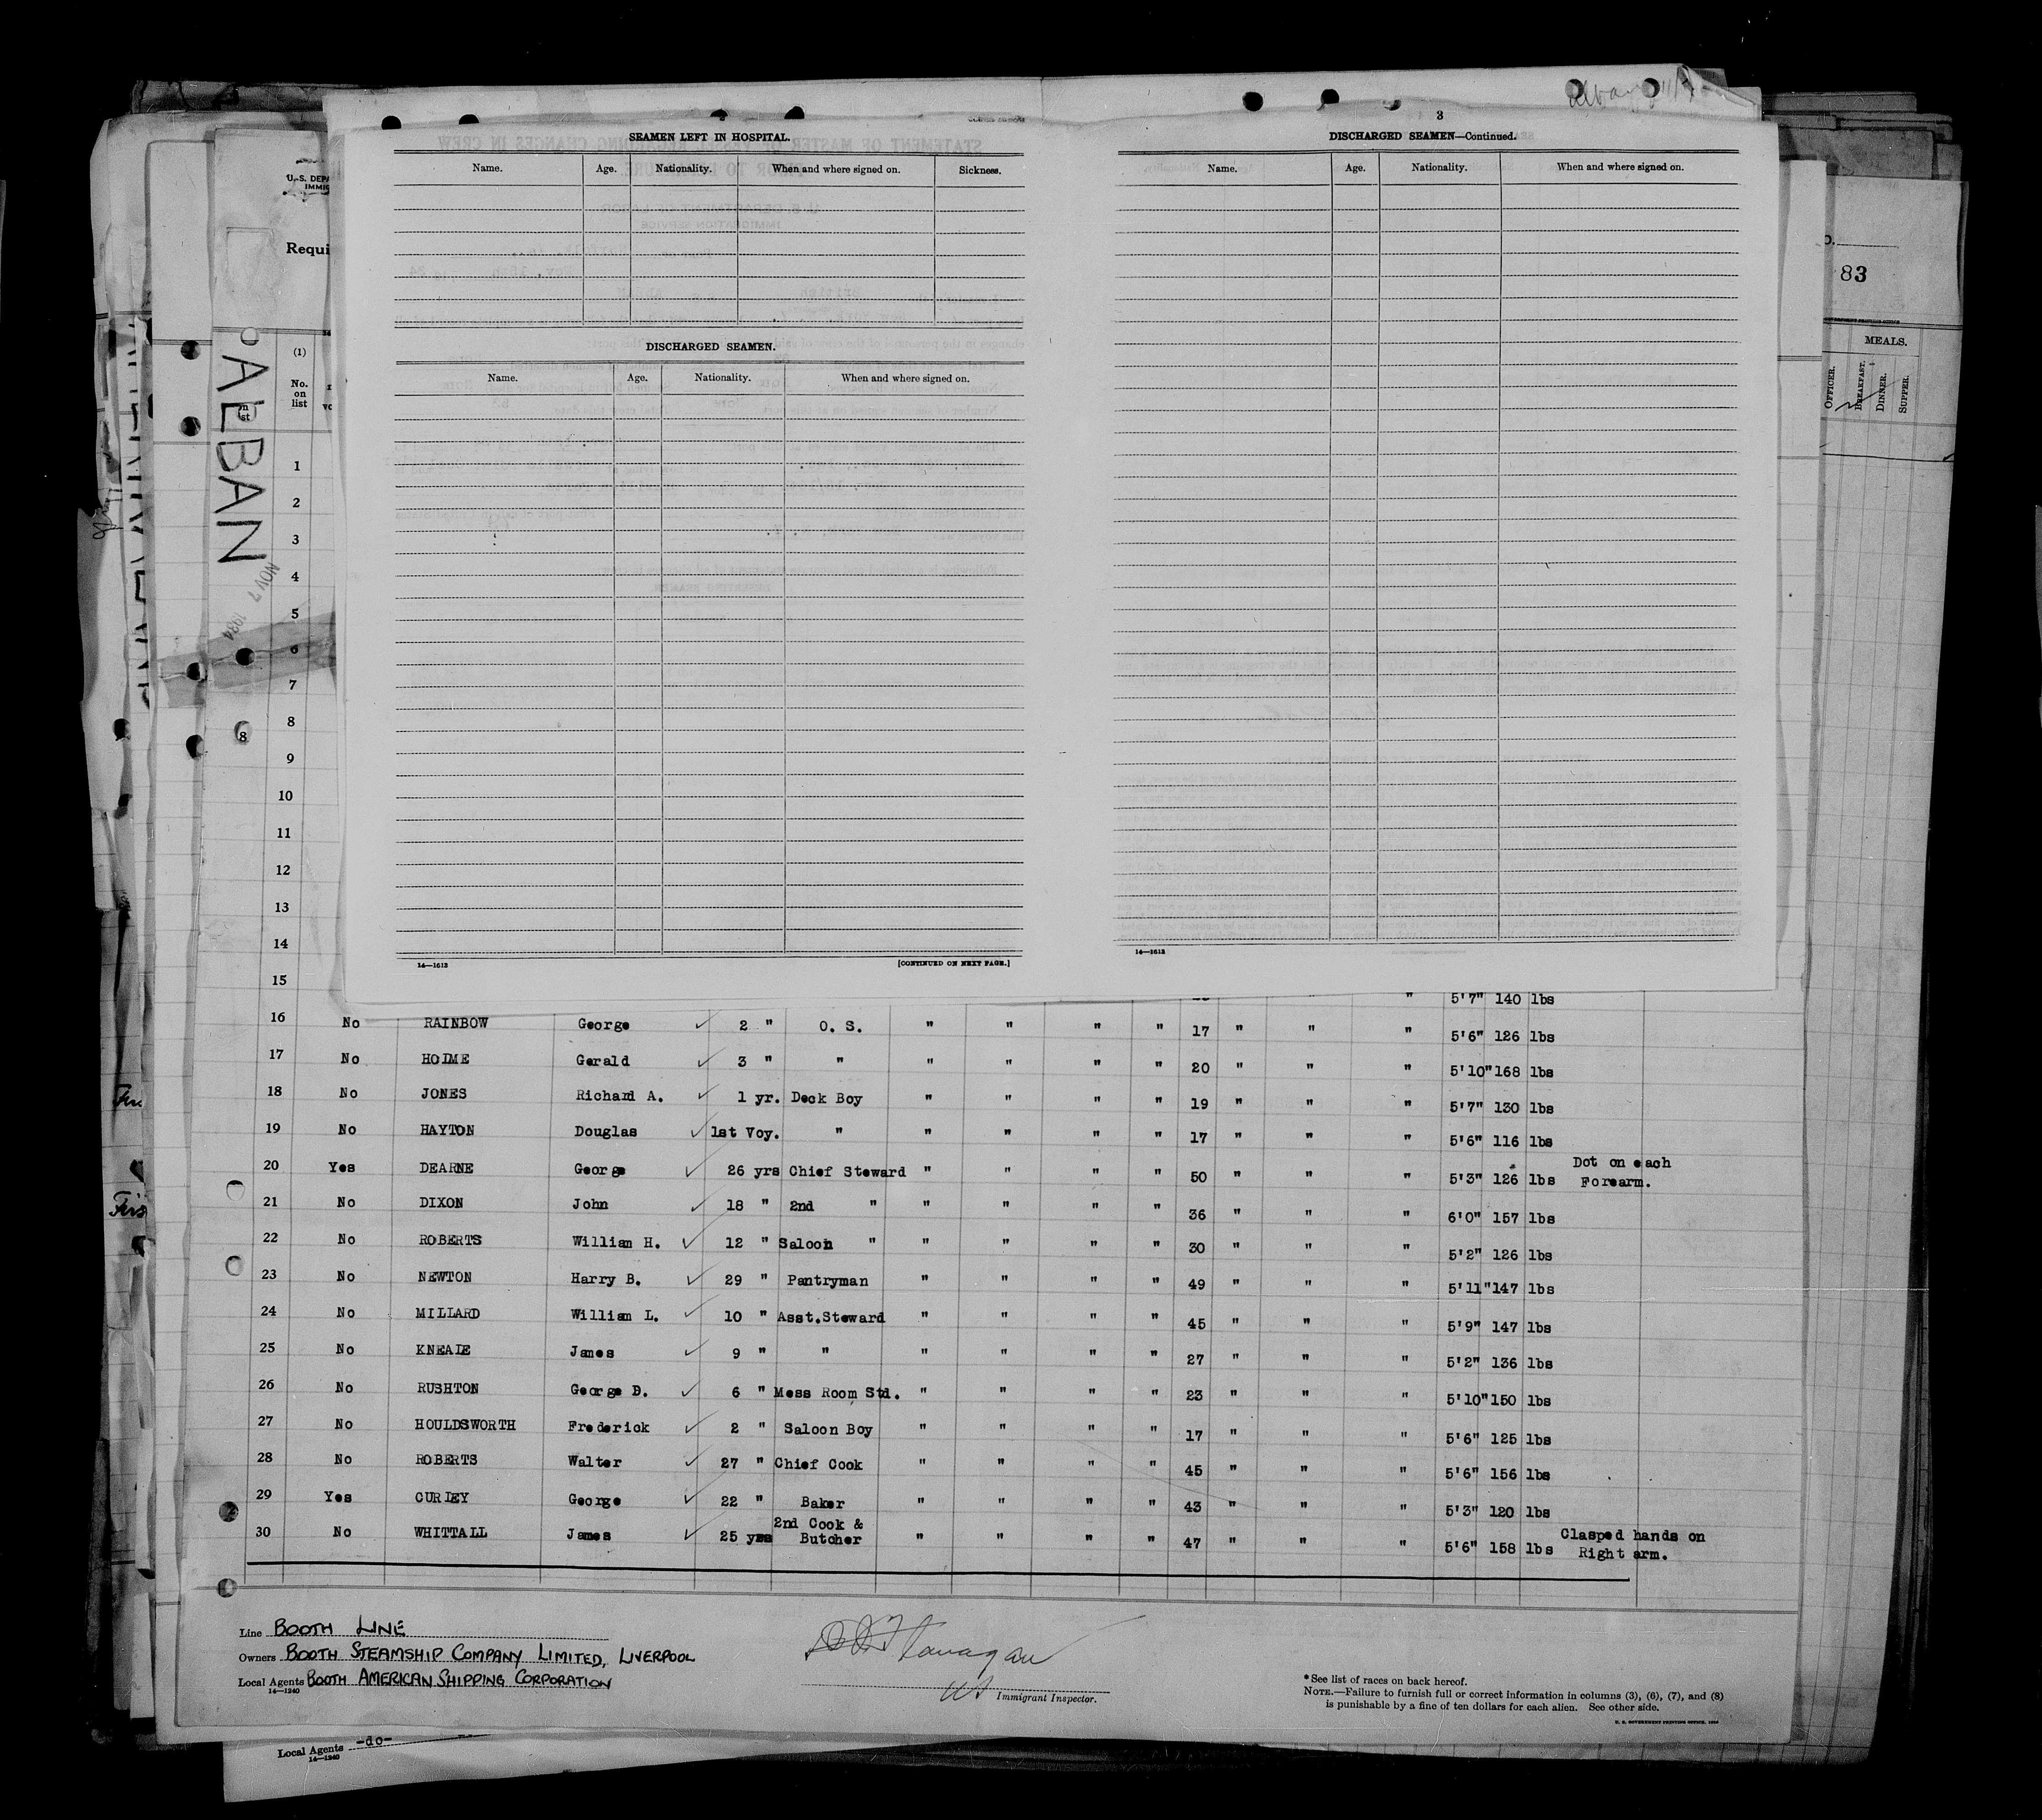 SEAMEN LEFT IN HOSPITAL.
Name. Age. Nationality. When and where signed on. Sickness.
DISCHARGED SEAMEN.
Name. Age. Nationality. When and where signed on.
14—1613 [CONTINUED ON NEXT PAGE.]
3
DISCHARGED SEAMEN—Continued.
Name. Age. Nationality. When and where signed on.
14—1613
U. S. DEPA
IMMIG
Requi
83
MEALS.
OFFICER. BREAKFAST. DINNER. SUPPER.
ALBAN
NOV 7 1934
(1)
No. on list
1
2
3
4
5
6
7
8
9
10
11
12
13
14
15 " 5'7" 140 lbs
16 No RAINBOW George ✓ 2 " O. S. " " " " 17 " " " 5'6" 126 lbs
17 No HOLME Gerald ✓ 3 " " " " " " 20 " " " 5'10" 168 lbs
18 No JONES Richard A. ✓ 1 yr. Deck Boy " " " " 19 " " " 5'7" 130 lbs
19 No HAYTON Douglas ✓ 1st Voy. " " " " " 17 " " " 5'6" 116 lbs
20 Yes DEARNE George ✓ 26 yrs Chief Steward " " " " 50 " " " 5'3" 126 lbs Dot on each Forearm.
21 No DIXON John ✓ 18 " 2nd " " " " " 36 " " " 6'0" 157 lbs
22 No ROBERTS William H. ✓ 12 " Saloon " " " " " 30 " " " 5'2" 126 lbs
23 No NEWTON Harry B. ✓ 29 " Pantryman " " " " 49 " " " 5'11" 147 lbs
24 No MILLARD William L. ✓ 10 " Asst.Steward " " " " 45 " " " 5'9" 147 lbs
25 No KNEALE James ✓ 9 " " " " " " 27 " " " 5'2" 136 lbs
26 No RUSHTON George D. ✓ 6 " Mess Room Std. " " " " 23 " " " 5'10" 150 lbs
27 No HOULDSWORTH Frederick ✓ 2 " Saloon Boy " " " " 17 " " " 5'6" 125 lbs
28 No ROBERTS Walter ✓ 27 " Chief Cook " " " " 45 " " " 5'6" 156 lbs
29 Yes CURLEY George ✓ 22 " Baker " " " " 43 " " " 5'3" 120 lbs
30 No WHITTALL James ✓ 25 yrs 2nd Cook & Butcher " " " " 47 " " " 5'6" 158 lbs Clasped hands on Right arm.
Line BOOTH LINE
Owners BOOTH STEAMSHIP COMPANY LIMITED, LIVERPOOL
Local Agents BOOTH AMERICAN SHIPPING CORPORATION
14—1240
Immigrant Inspector.
*See list of races on back hereof.
NOTE.—Failure to furnish full or correct information in columns (3), (6), (7), and (8)
is punishable by a fine of ten dollars for each alien. See other side.
Local Agents -do-
14—1240